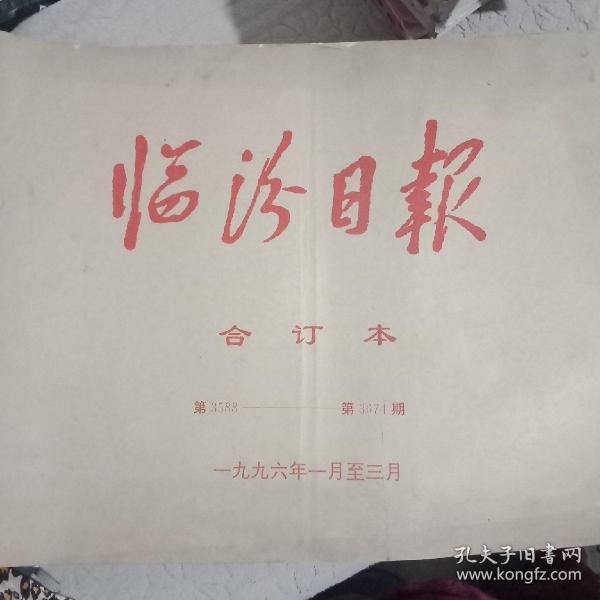 临汾日報
合订本
第3588——第3674期
一九九六年一月至三月
孔夫子旧書网
www.kongfz.com